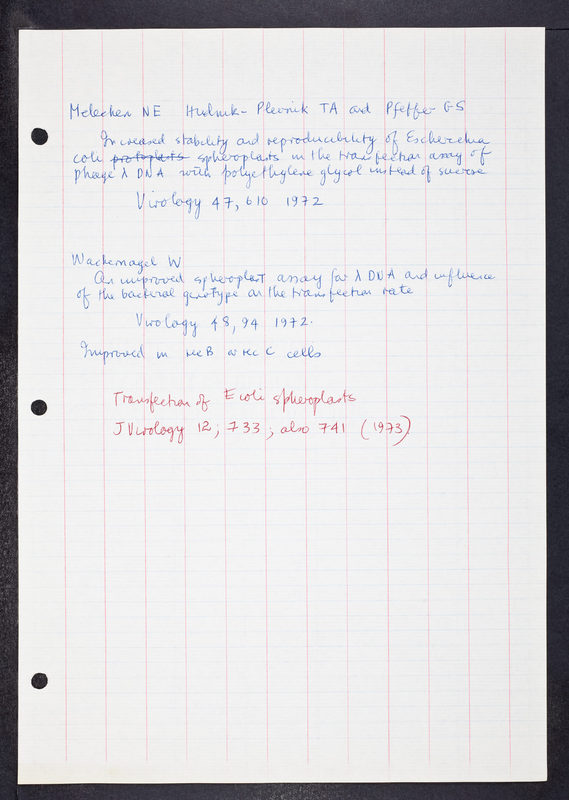 Melechen NE Hudnik-Plevnik TA and Pfeffer GS
Increased stability and reproducibility of Escherichia
coli protoplasts spheroplasts in the transfection assay of
phage λ DNA with polyethylene glycol instead of sucrose
Virology 47, 610 1972
Wackernagel W
An improved spheroplast assay for λ DNA and influence
of the bacterial genotype on the transfection rate
Virology 48, 94 1972.
Improved in rec B or rec C cells
Transfection of E coli spheroplasts
J Virology 12; 733; also 741 (1973)